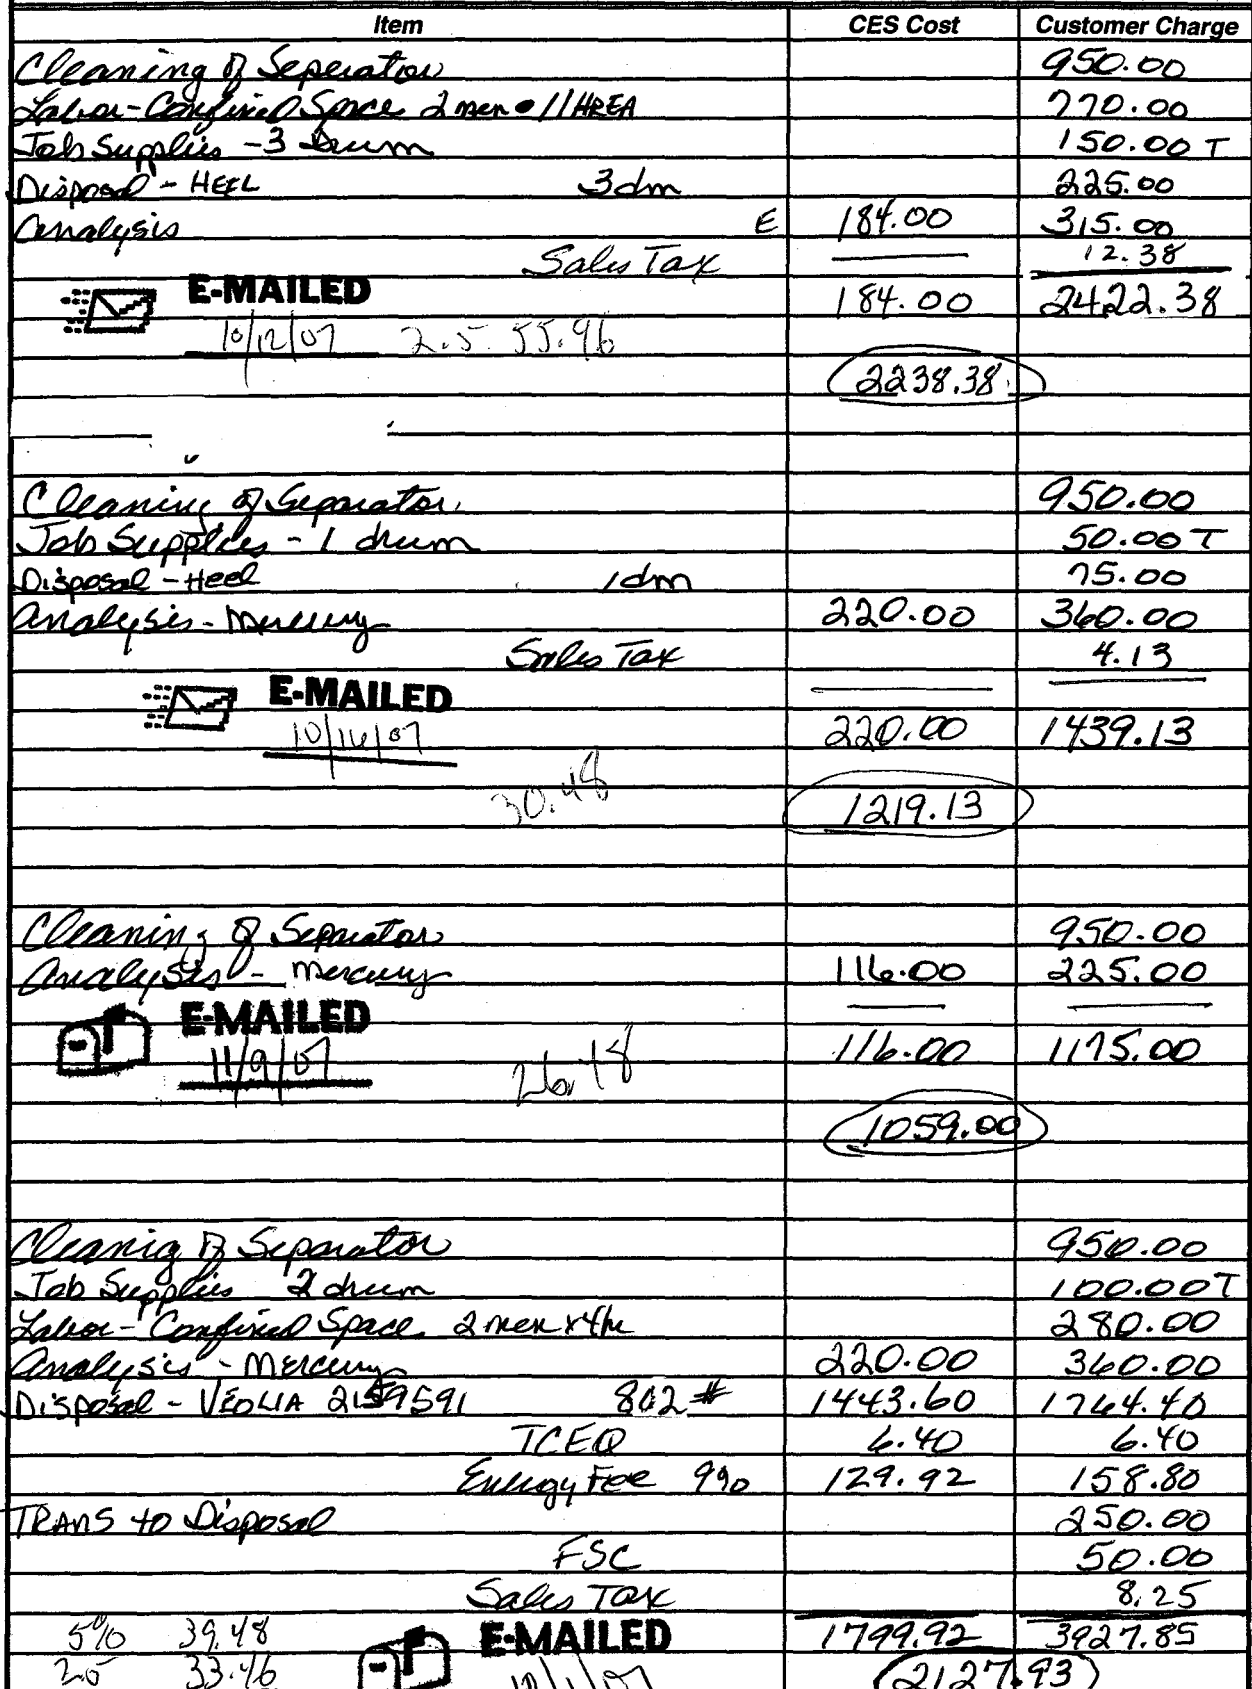 Item CES Cost Customer Charge
Cleaning of Seperator 950.00
Labor - Confined Space 2 men • 11 HREA 770.00
Job Supplies - 3 Drum 150.00 T
Disposal - HEEL 3dm 225.00
Analysis E 184.00 315.00
Sales Tax 12.38
E-MAILED 184.00 2422.38
10/12/07 2.5 55.96
2238.38
Cleaning of Separator 950.00
Job Supplies - 1 drum 50.00 T
Disposal - Heel 1dm 75.00
Analysis - Mercury 220.00 360.00
Sales Tax 4.13
E-MAILED
10/16/07 220.00 1439.13
30.48 1219.13
Cleaning of Separator 950.00
Analysis - Mercury 116.00 225.00
E-MAILED
11/9/07 26.48 116.00 1175.00
1059.00
Cleanig of Separator 950.00
Job Supplies 2 drum 100.00 T
Labor - Confined Space 2 men x 4hr 280.00
Analysis - Mercury 220.00 360.00
Disposal - VEOLIA 2159591 802 # 1443.60 1764.40
TCEQ 6.40 6.40
Energy Fee 9% 129.92 158.80
TRANS to Disposal 250.00
FSC 50.00
Sales Tax 8.25
5% 39.48 E-MAILED 1799.92 3927.85
2.5 33.46 2127.93